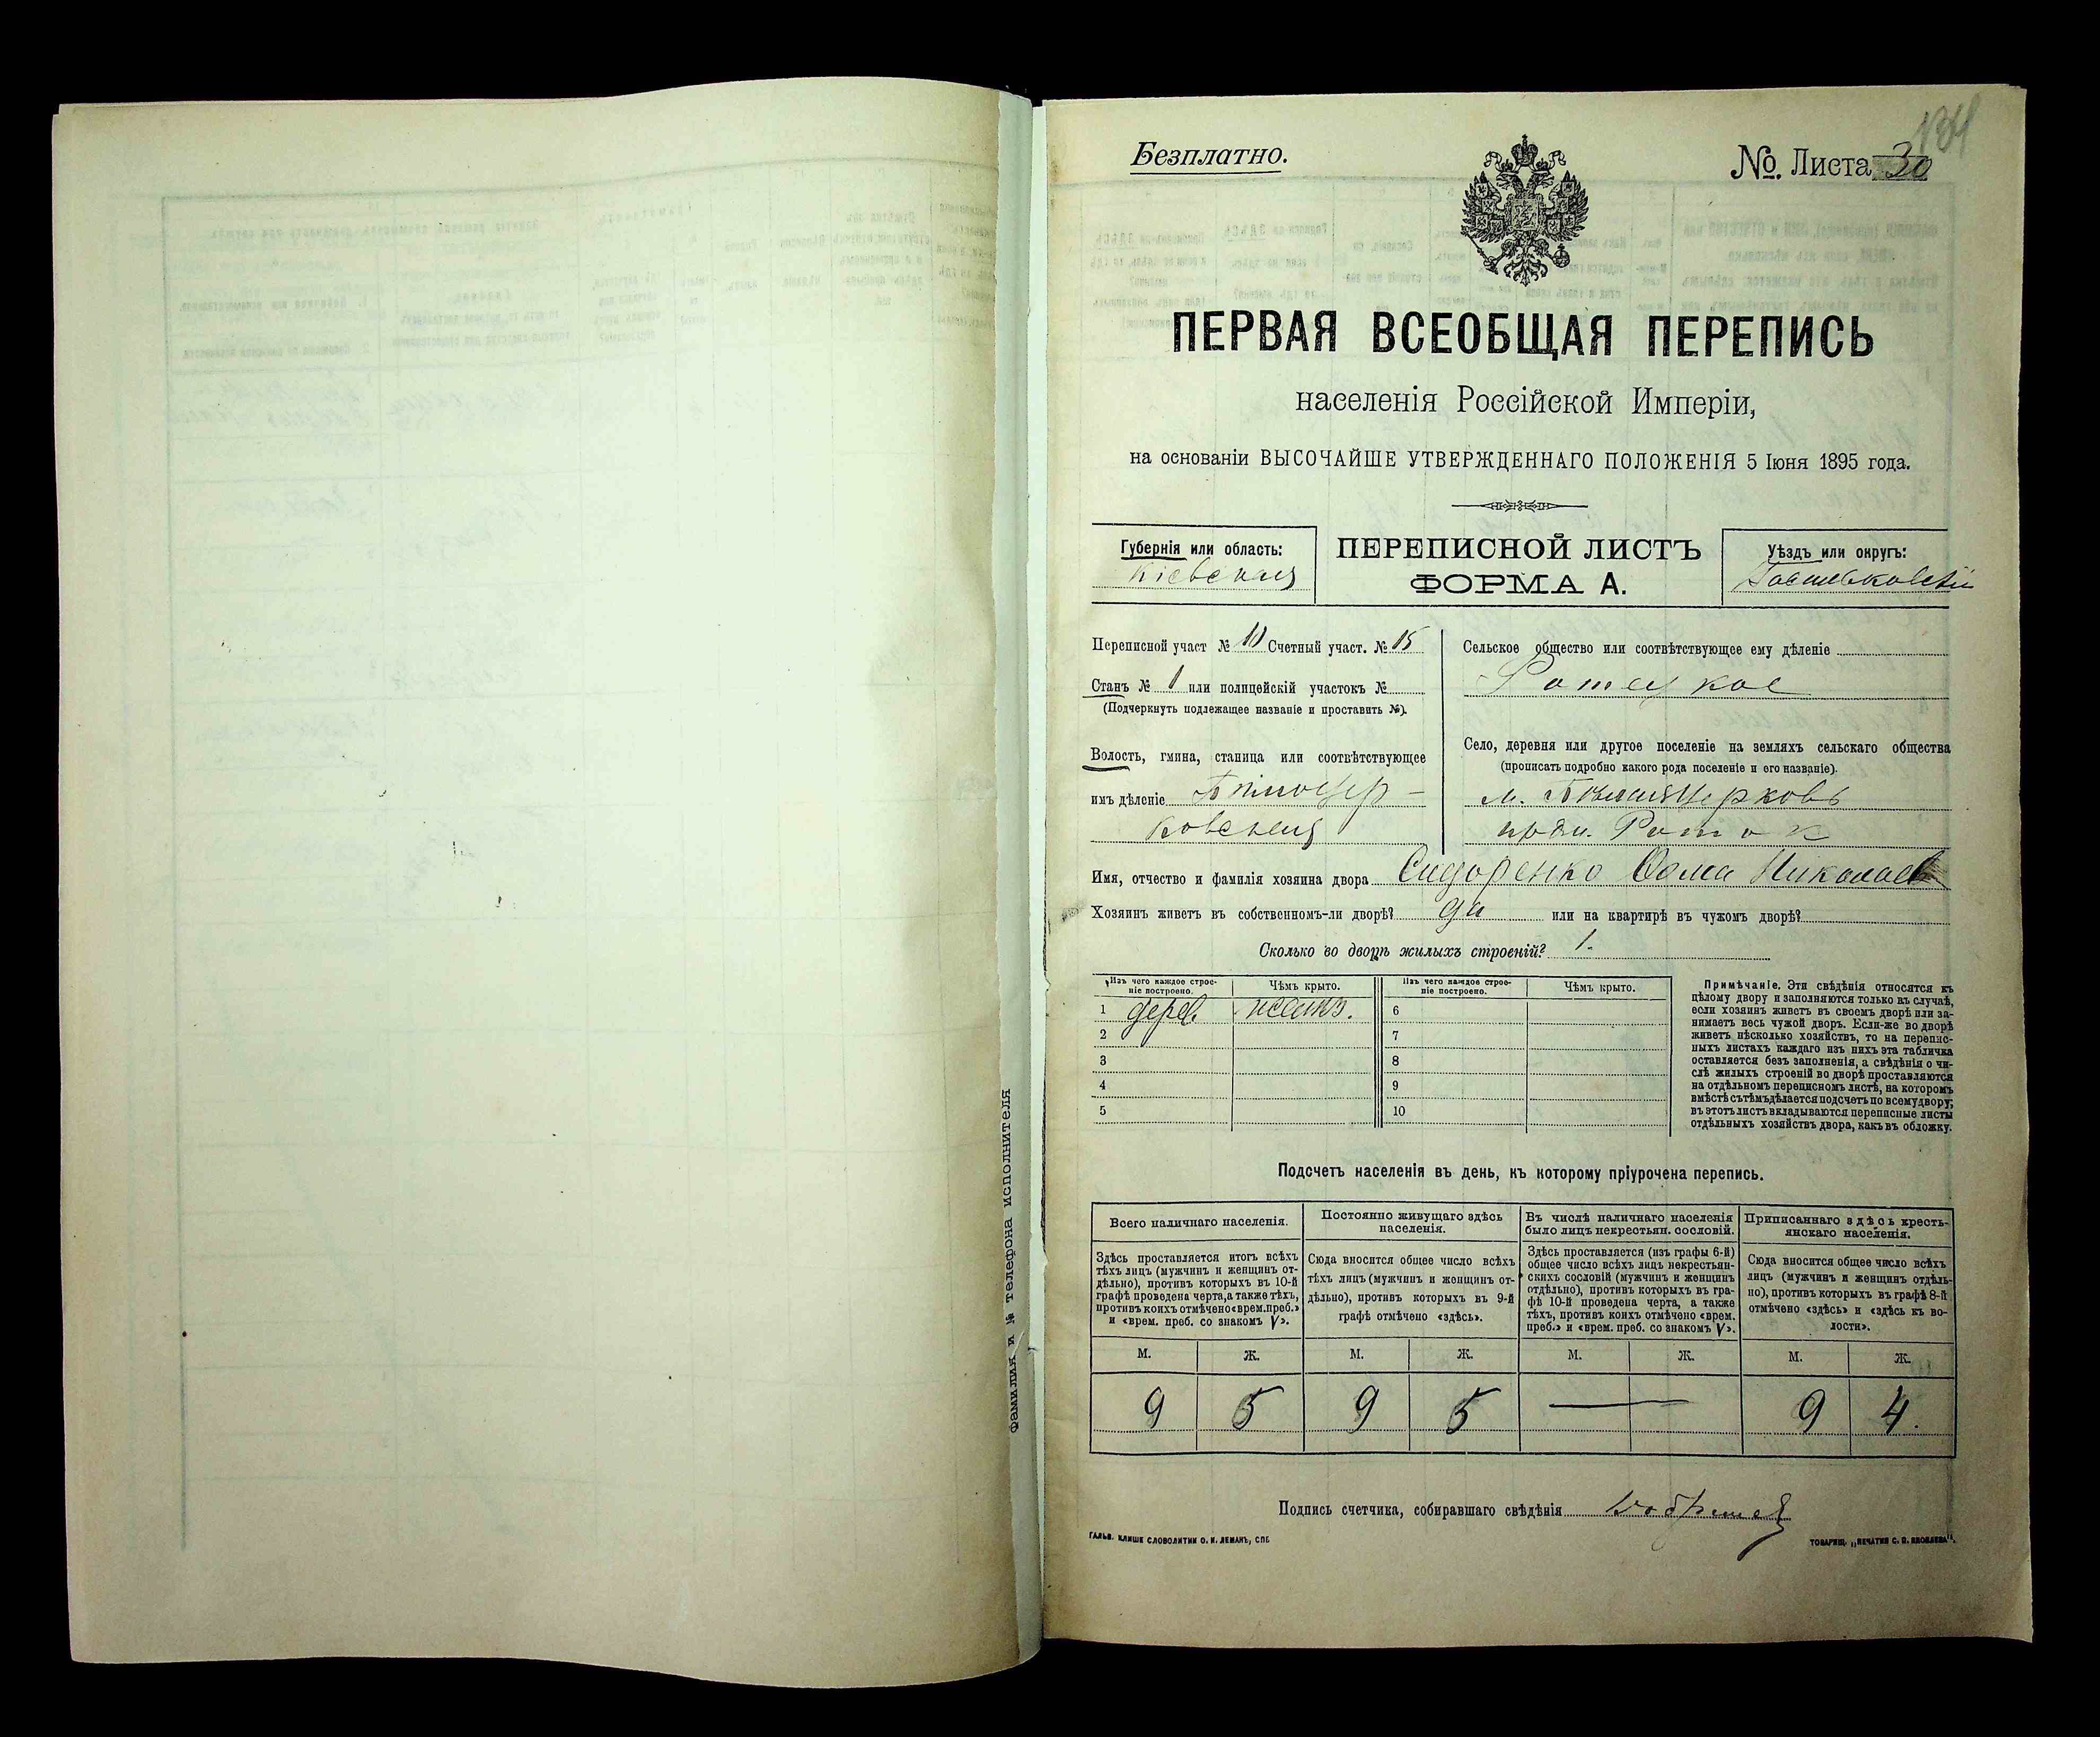 134
Безплатно.
№. Листа 30
ПЕРВАЯ ВСЕОБЩАЯ ПЕРЕПИСЬ
населенія Россійской Имперіи,
на основаніи ВЫСОЧАЙШЕ УТВЕРЖДЕННАГО ПОЛОЖЕНІЯ 5 Іюня 1895 года.
Губернія или область:
Кіевская
ПЕРЕПИСНОЙ ЛИСТЪ
ФОРМА А.
Уѣздъ или округъ:
Васильковскій
Переписной участ № 10 Счетный участ. № 15
Станъ № 1 или полицейскій участокъ №
(Подчеркнуть подлежащее названіе и проставить №).
Волость, гмина, станица или соотвѣтствующее
имъ дѣленіе Бѣлоцер-
ковская
Сельское общество или соотвѣтствующее ему дѣленіе
Ротецкое
Село, деревня или другое поселеніе на земляхъ сельскаго общества
(прописать подробно какого рода поселеніе и его названіе).
м. БѣлаяЦерковь
Роток
Имя, отчество и фамилія хозяина двора Сидоренко Ѳома Николаев
Хозяинъ живетъ въ собственномъ-ли дворѣ? да или на квартирѣ въ чужомъ дворѣ?
Сколько во дворѣ жилыхъ строеній? 1.
Изъ чего каждое строе-
ніе построено.
Чѣмъ крыто.
Изъ чего каждое строе-
ніе построено.
Чѣмъ крыто.
1 дерев 6
2 7
3 8
4 9
5 10
Примѣчаніе. Эти свѣдѣнія относятся къ
цѣлому двору и заполняются только въ случаѣ,
если хозяинъ живетъ въ своемъ дворѣ или за-
нимаетъ весь чужой дворъ. Если-же во дворѣ
живетъ нѣсколько хозяйствъ, то на перепис-
ныхъ листахъ каждаго изъ нихъ эта табличка
оставляется безъ заполненія, а свѣдѣнія о чи-
слѣ жилыхъ строеній во дворѣ проставляются
на отдѣльномъ переписномъ листѣ, на которомъ
вмѣстѣ съ тѣмъ дѣлается подсчетъ по всему двору;
въ этотъ листъ вкладываются переписные листы
отдѣльныхъ хозяйствъ двора, какъ въ обложку.
Подсчетъ населенія въ день, къ которому пріурочена перепись.
Всего наличнаго населенія.
Здѣсь проставляется итогъ всѣхъ
тѣхъ лицъ (мужчинъ и женщинъ от-
дѣльно), противъ которыхъ въ 10-й
графѣ проведена черта, а также тѣхъ,
противъ коихъ отмѣчено «врем. преб.»
и «врем. преб. со знакомъ V».
Постоянно живущаго здѣсь
населенія.
Сюда вносится общее число всѣхъ
тѣхъ лицъ (мужчинъ и женщинъ от-
дѣльно), противъ которыхъ въ 9-й
графѣ отмѣчено «здѣсь».
Въ числѣ наличнаго населенія
было лицъ некрестьян. сословій.
Здѣсь проставляется (изъ графы 6-й)
общее число всѣхъ лицъ некрестьян-
скихъ сословій (мужчинъ и женщинъ
отдѣльно), противъ которыхъ въ гра-
фѣ 10-й проведена черта, а также
тѣхъ, противъ коихъ отмѣчено «врем.
преб.» и «врем. преб. со знакомъ V».
Приписаннаго здѣсь кресть-
янскаго населенія.
Сюда вносится общее число всѣхъ
лицъ (мужчинъ и женщинъ отдѣль-
но), противъ которыхъ въ графѣ 8-й
отмѣчено «здѣсь» и «здѣсь къ во-
лости».
М. Ж. М. Ж. М. Ж. М. Ж.
9 5 9 5 — 9 4.
Подпись счетчика, собиравшаго свѣдѣнія
ГАЛЬВ. КЛИШЕ СЛОВОЛИТНИ О. И. ЛЕМАНЪ, СПБ.
ТОВАРИЩ. „ПЕЧАТНЯ С. П. ЯКОВЛЕВА".
Фамилия и № телефона исполнителя